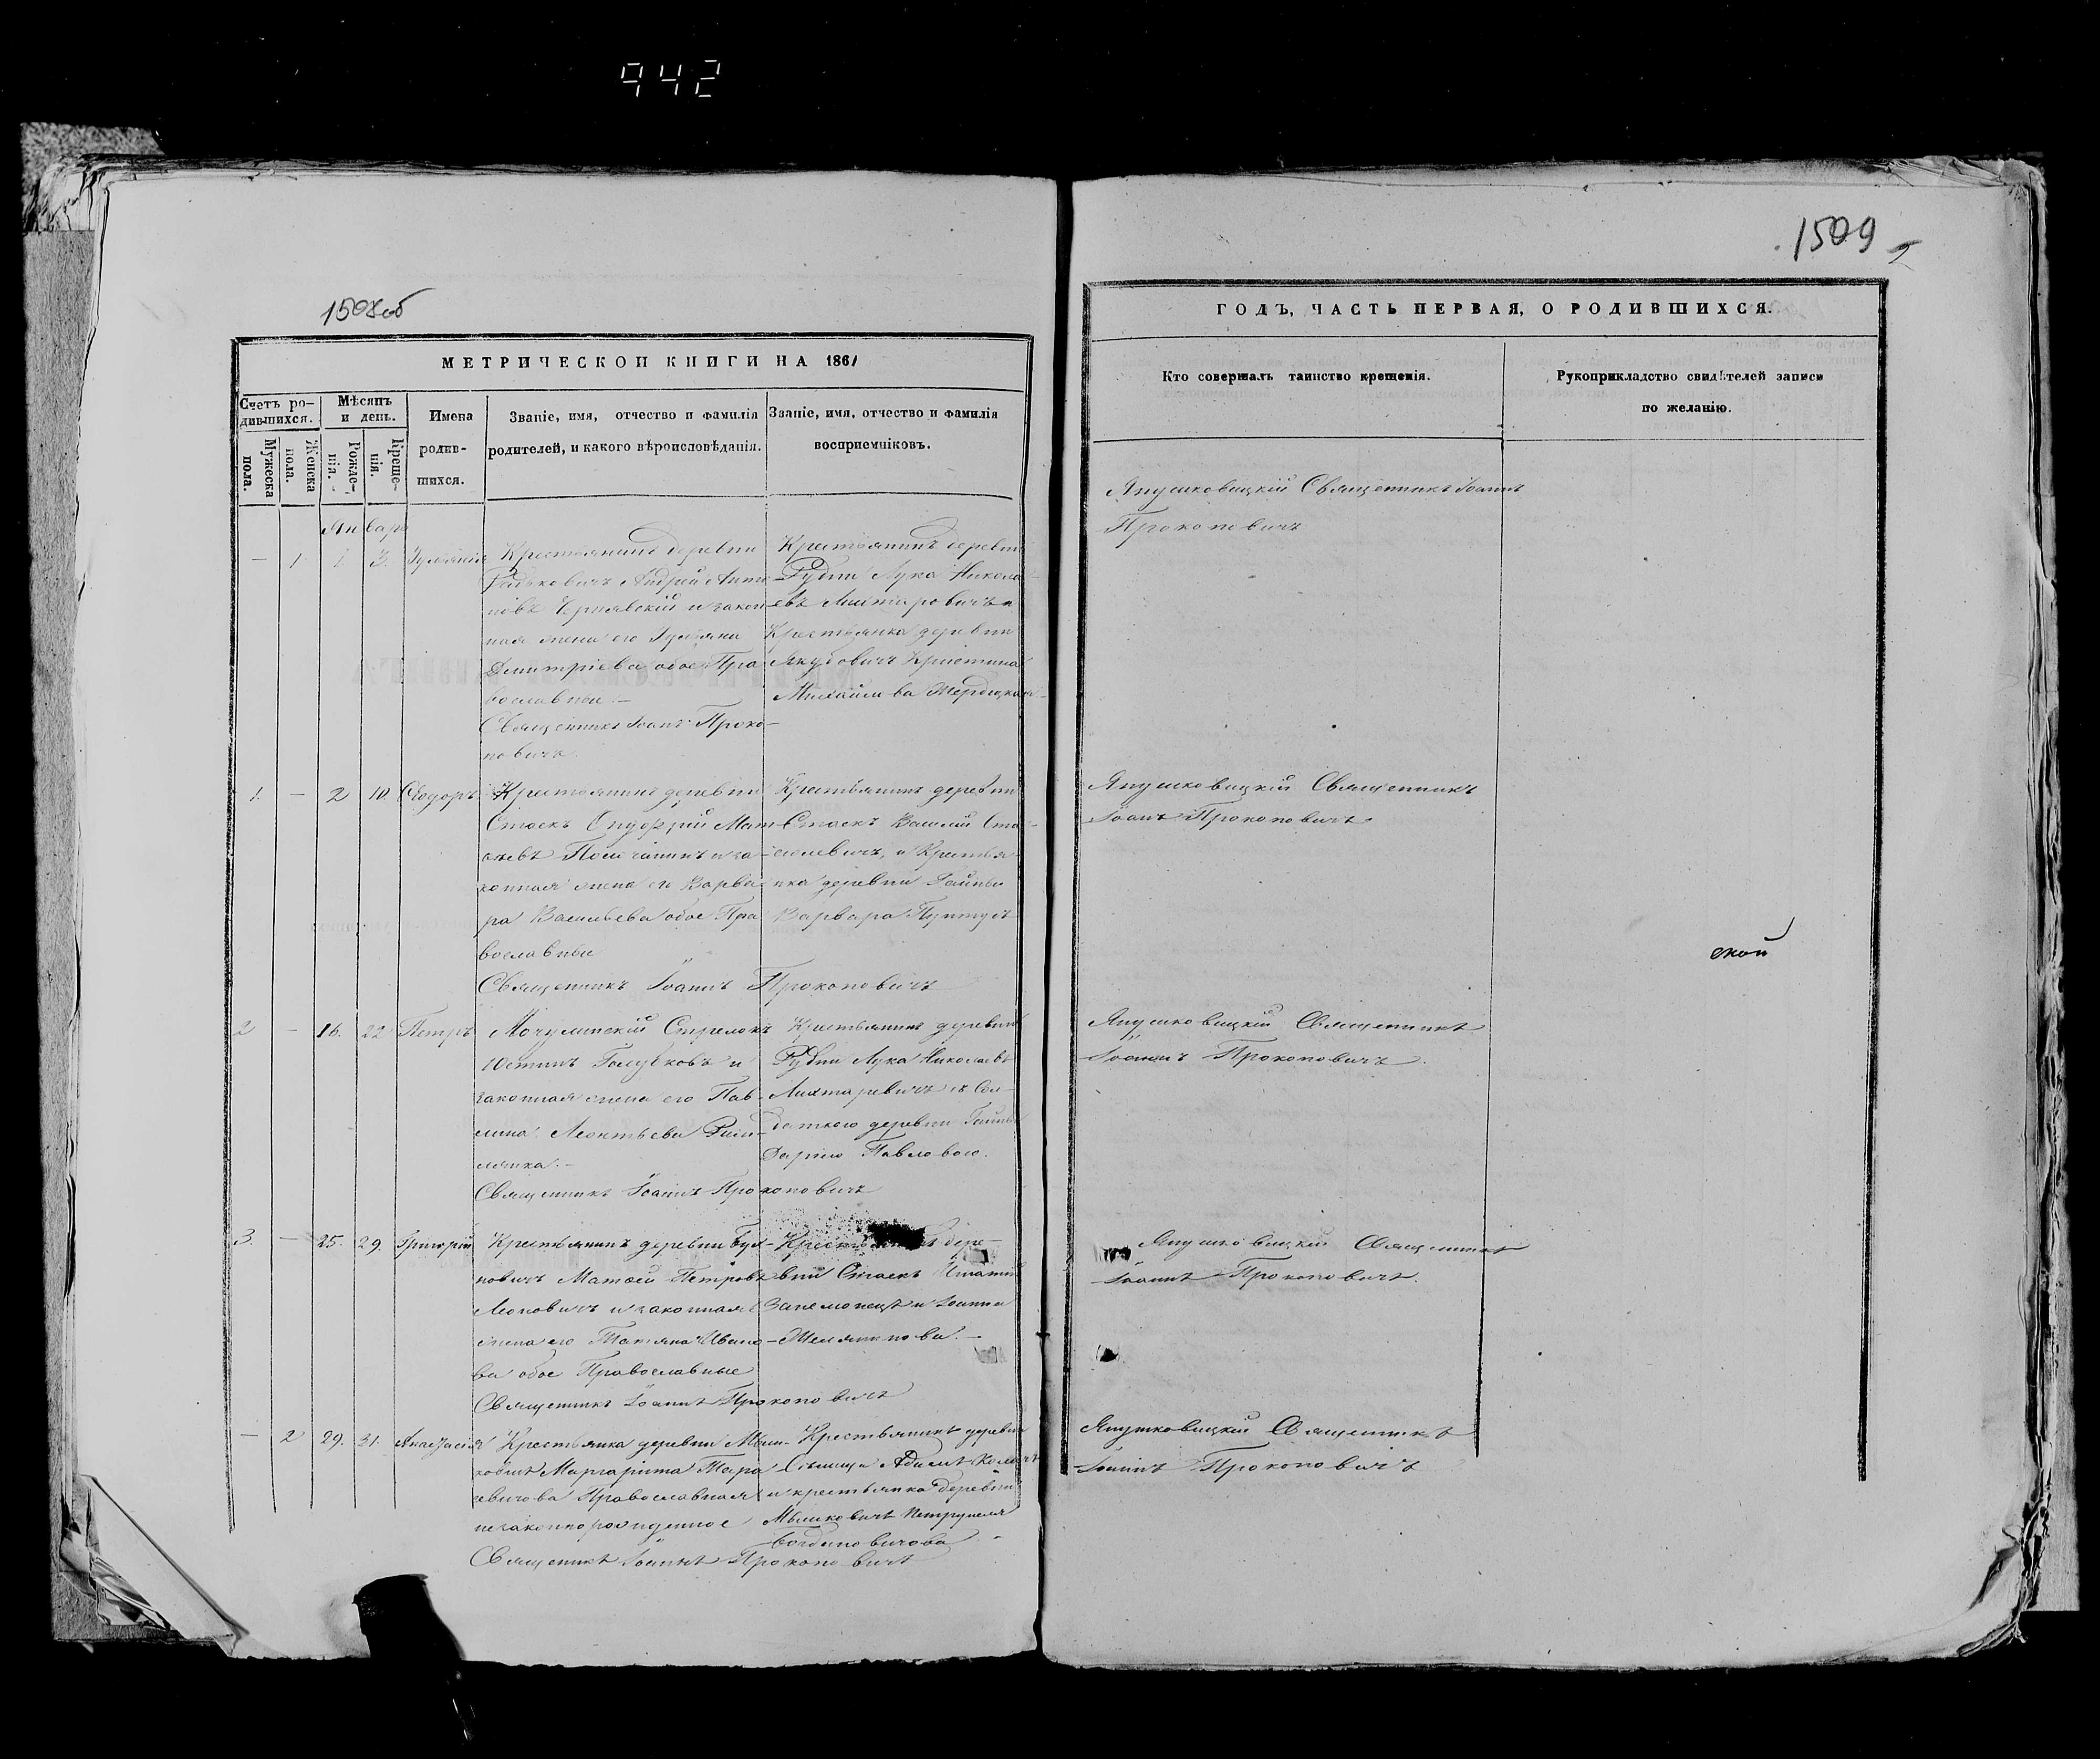 942
1508об
МЕТРИЧЕСКОЙ КНИГИ НА 1861
Счетъ ро-
дившихся.
Мужеска
пола.
Женска
пола.
Мѣсяцъ
и день.
Рожде-
нія.
Креще-
нія.
Имена
родив-
шихся.
Званіе, имя, отчество и фамилія
родителей, и какого вѣроисповѣданія.
Званіе, имя, отчество и фамилія
воспріемниковъ.
Январь
— 1 1 3. Іуліанія
Крестьянинъ деревни
Андрей Анто-
новъ Чернявскій и закон-
ная жена его Іуліяна
Дмитріева обое Пра
вославныи. —
Священникъ Іоаннъ Проко-
повичъ.
Крестьянинъ деревни
Рудни Лука Никола-
евъ и
Крестьянка деревни
Якубовичъ Кристина
Михайлова
1. — 2 10. Ѳеодоръ
Крестьянинъ деревни
Стаекъ Онуфрій Мат
и за-
конная жена его Варва-
ра Васильева обое Пра
вославные
Священникъ Іоаннъ Прокоповичъ
Крестьянинъ деревни
Стаекъ Василій Ста-
и Крестья
нка деревни Гайны
Варвара
2 — 16. 22 Петръ
Мочулинскій Стрелокъ
Юстинъ Голубковъ и
законная жена его Пав-
лина Леонтьева Рим-
лянка. —
Священникъ Іоаннъ Прокоповичъ
Крестьянинъ деревни
Рудни Лука Николаевъ
съ Сол-
даткою деревни Гайны
Дарією Павловою.
3. — 25. 29. Григорій
Крестьянинъ деревни Бул-
повичъ Матѳей Петровъ
и законная
жена его Татіяна Ивано-
ва обое Православные
Священникъ Іоаннъ Прокоповичъ
дере-
вни Стаекъ Игнатій
и Іоанна
— 2 29. 31. Анастасія
Крестьянка деревни Мыш-
ковичъ Маргарита Тара
севичова Православная
незаконнорожденное
Священникъ Іоаннъ Прокоповичъ
Крестьянинъ деревни
Адамъ
и крестьянка деревни
Мышковичъ Петрунеля
Богдановичова
1509
ГОДЪ, ЧАСТЬ ПЕРВАЯ, О РОДИВШИХСЯ.
Кто совершалъ таинство крещенія.
Рукоприкладство свидѣтелей записи
по желанію.
Янушковицкій Священникъ Іоаннъ
Прокоповичъ
Янушковицкій Священникъ
Іоаннъ Прокоповичъ
ской
Янушковицкій Священникъ
Іоаннъ Прокоповичъ.
Янушковицкій Священникъ
Іоаннъ Прокоповичъ.
Янушковицкій Священникъ
Іоаннъ Прокоповичъ